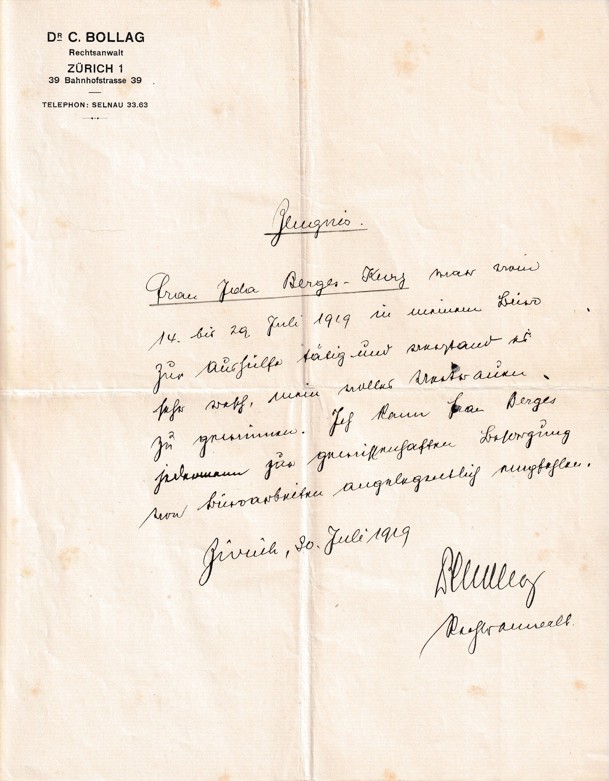 Dr C. BOLLAG
Rechtsanwalt
ZÜRICH 1
39 Bahnhofstrasse 39
TELEPHON: SELNAU 33.63
Zeugnis.
Frau Ida Berges-Kurz war vom
14. bis 29. Juli 1919 in meinem Büro
zur Aushülfe tätig und verstand es
sehr wohl, mein volles Vertrauen
zu gewinnen. Ich kann Frau Berges
jedermann zur gewissenhaften Besorgung
von Büroarbeiten angelegentlich empfehlen.
Zürich, 30. Juli 1919
Bollag
Rechtsanwalt.